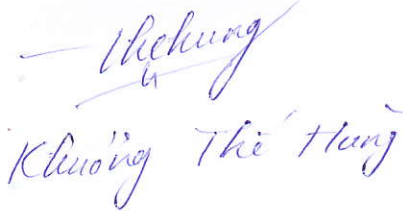 thehung
Khuông Thế Hùng